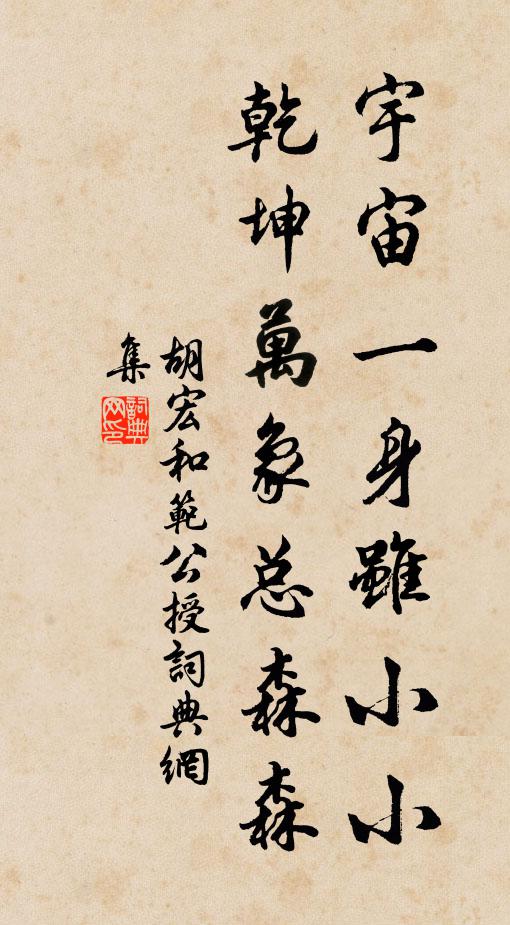 宇宙一身雖小小
乾坤萬象总森森
胡宏和範公授詞典網
集
詞典
网印